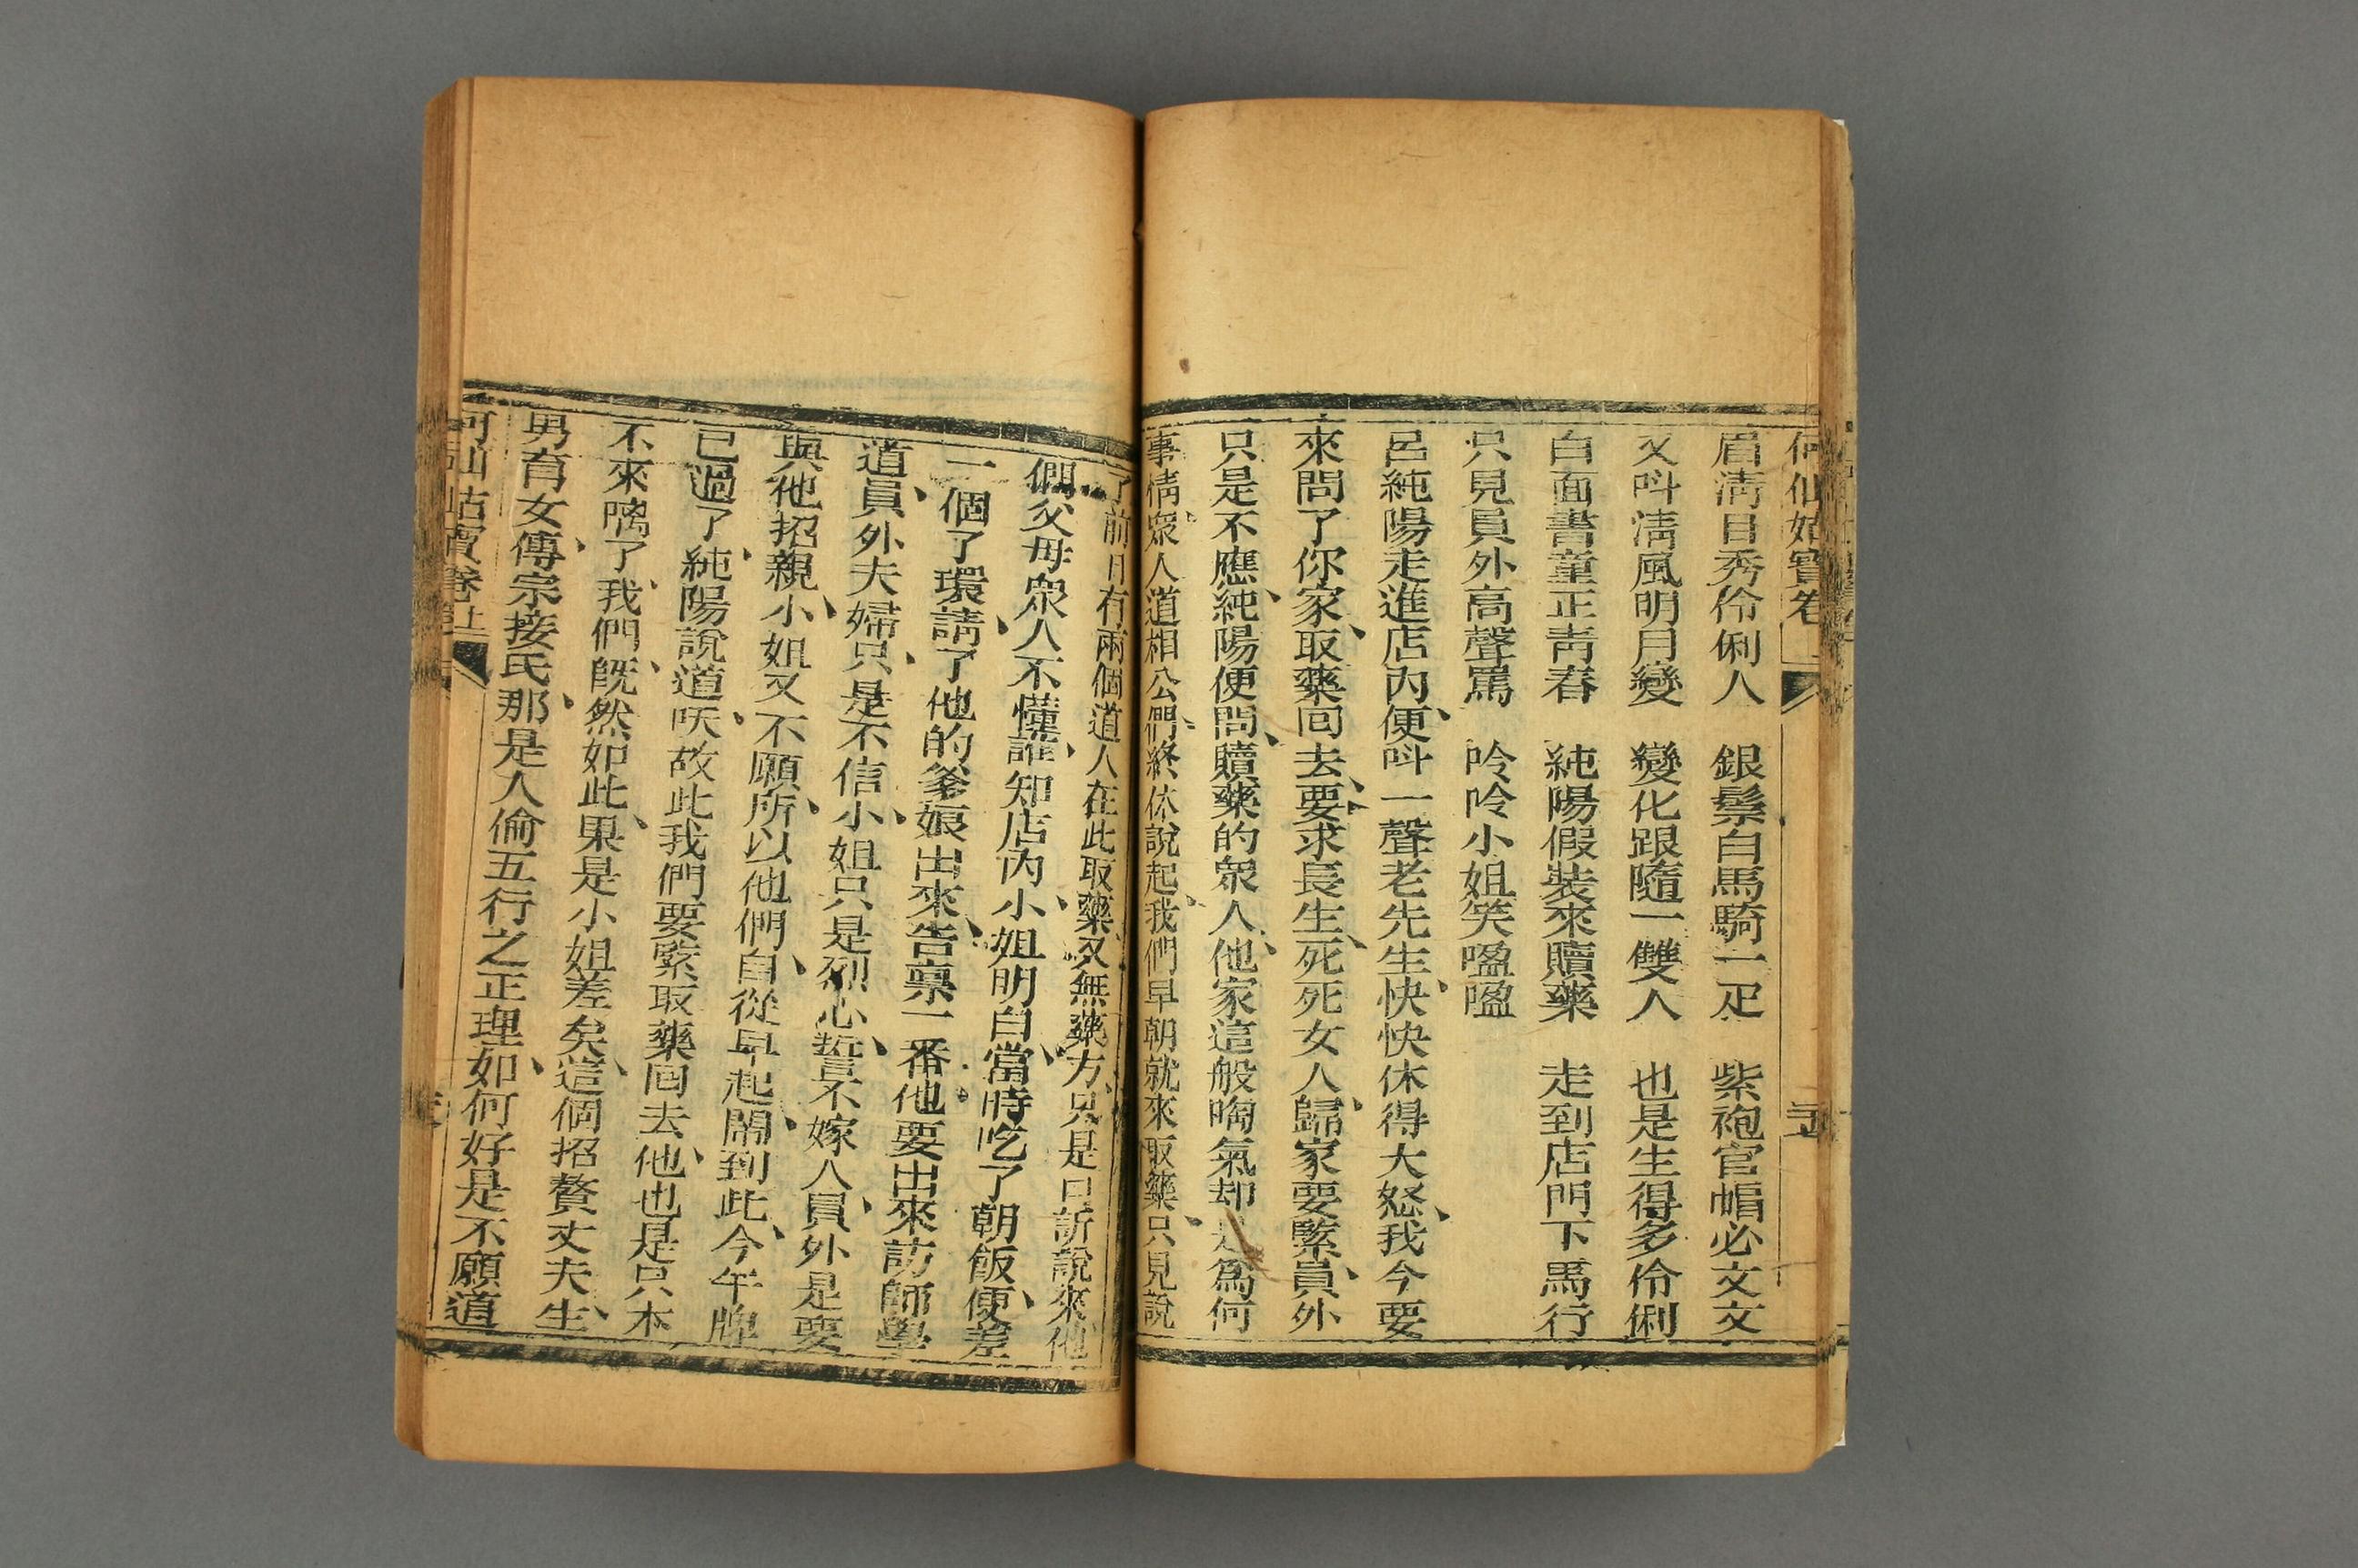 何仙姑寶卷
眉淸目秀伶俐人　銀鬃白馬騎一疋　紫袍官帽必文文
又呌淸風明月變　變化跟隨一雙人　也是生得多伶俐
白面書童正靑春　純陽假裝來贖藥　走到店門下馬行
只見員外高聲罵　呤呤小姐笑嗌嗌
呂純陽走進店內、便呌一聲老先生、快快休得大怒、我今要
來問了你家、取藥囘去、要求長生、死死女人、歸家要緊、員外
只是不應、純陽便問、贖藥的衆人、他家這般啕氣却是爲何
事情、衆人道相公們、終休說起、我們早朝就來取藥、只見說
了前日有兩個道人在此取藥、又無藥方、只是口訢說來、他
們父母衆人不懂、誰知店內、小姐明白、當時吃了朝飯、便差
一個了環、請了他的爹娘出來、告禀一番、他要出來訪師學
道、員外夫婦、只是不信、小姐只是烈心、誓不嫁人、員外是要
與他招親、小姐又不願、所以他們、自從早起、鬧到此、今午牌
已過了、純陽說道、㕭故此我們要緊取藥囘去、他也是只不
不來㗒了、我們、旣然如此、果是小姐差矣、這個招贅丈夫、生
男育女、傳宗接氏、那是人倫五行之正理、如何好是不願道
何仙姑寶卷 上